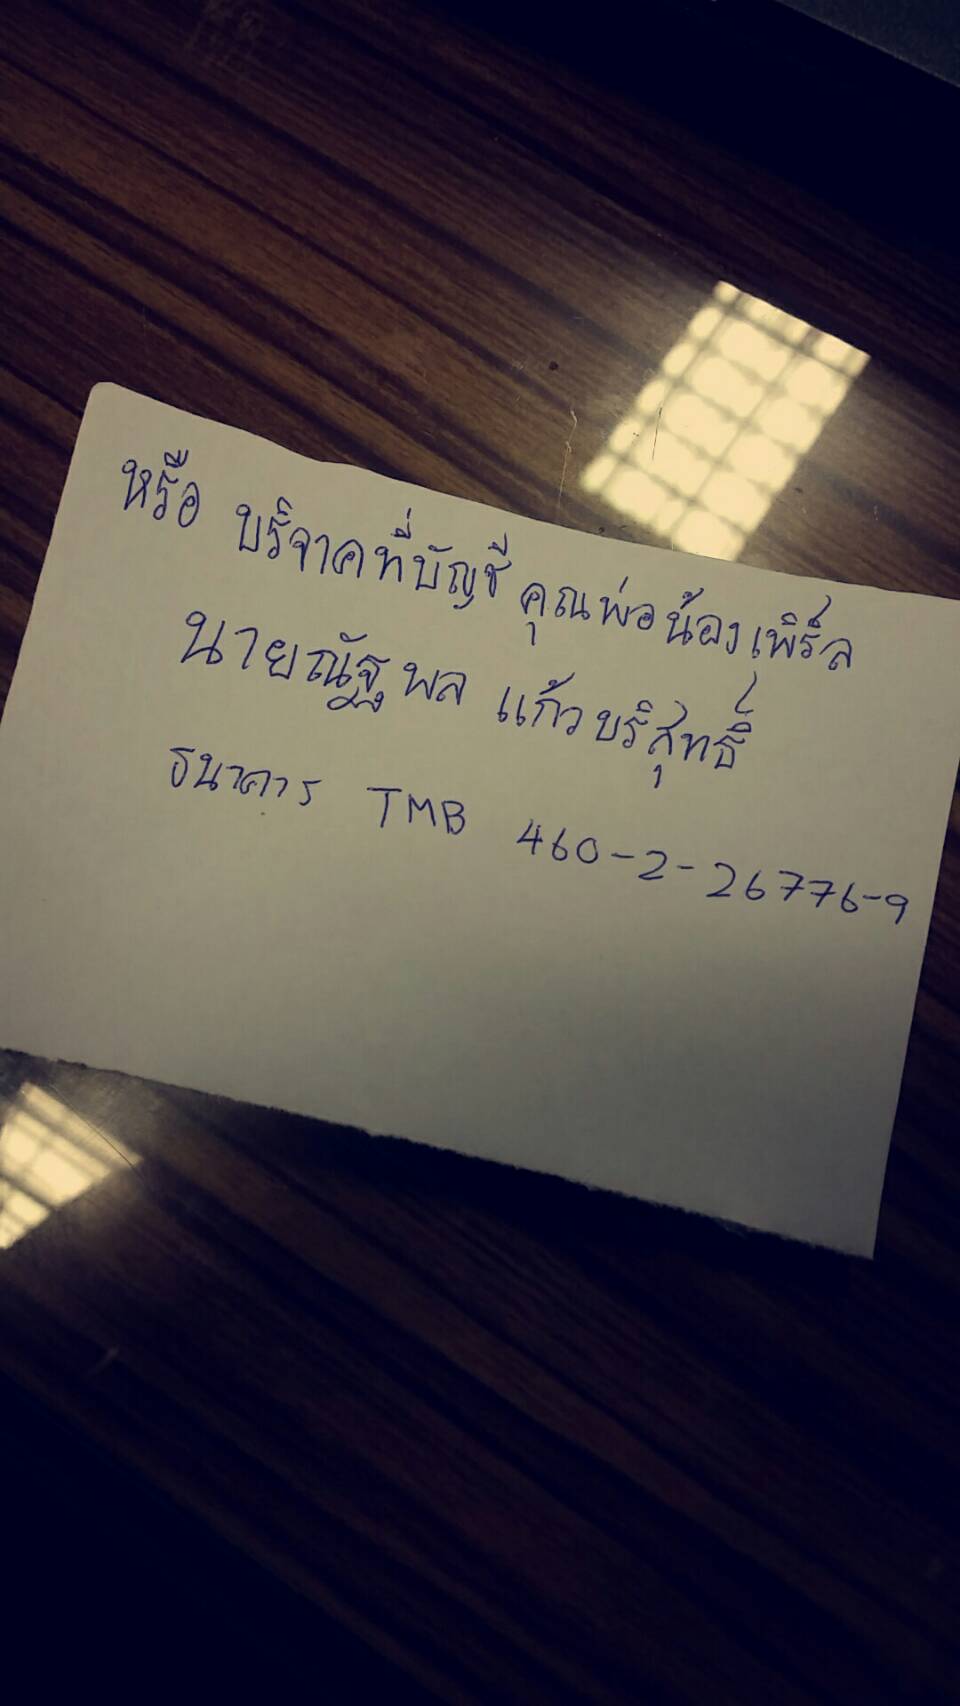 หรือ บริจาคที่บัญชี คุณพ่อน้องเพิร์ล
นายณัฐพล แก้วบริสุทธิ์
ธนาคาร TMB 460-2-26776-9